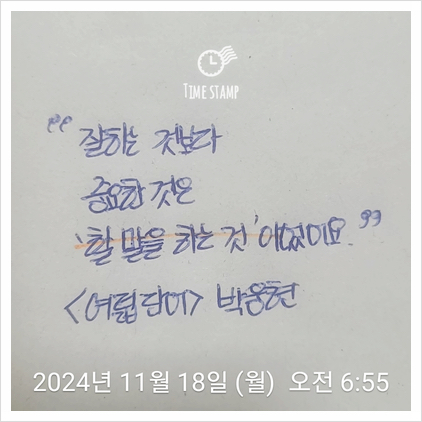 TIME STAMP
“잘하는 것보다
중요한 것은
‘할 말을 하는 것’이었어요.”
<여덟 단어> 박웅현
2024년 11월 18일 (월) 오전 6:55